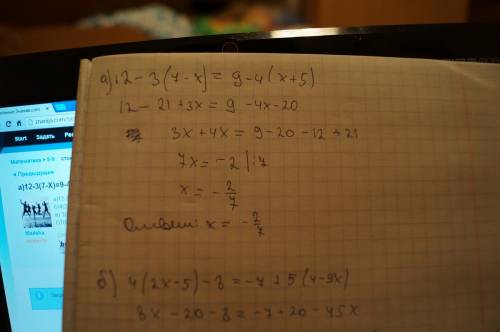 а) 12 - 3(7-x) = 9 - 4(x+5)
12 - 21 + 3x = 9 - 4x - 20
3x + 4x = 9 - 20 - 12 + 21
7x = -2 |:7
x = - 2/7
Ответ: x = - 2/7
б) 4(2x-5) - 8 = -7 + 5(4-9x)
8x - 20 - 8 = -7 + 20 - 45x
znanija.com
Start Задать
Математика
Предыдущая
а)12-3(7-X)=9-